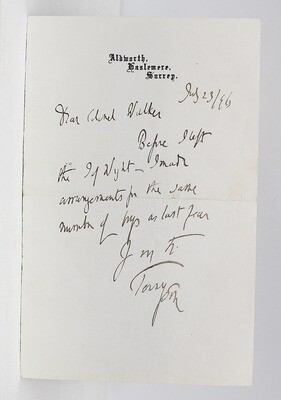 Aldworth,
Haslemere,
Surrey.
July 23/96
Dear Colonel Walker
Before I left
the I of Wight – I made
arrangements for the same
number of boys as last year
Tennyson